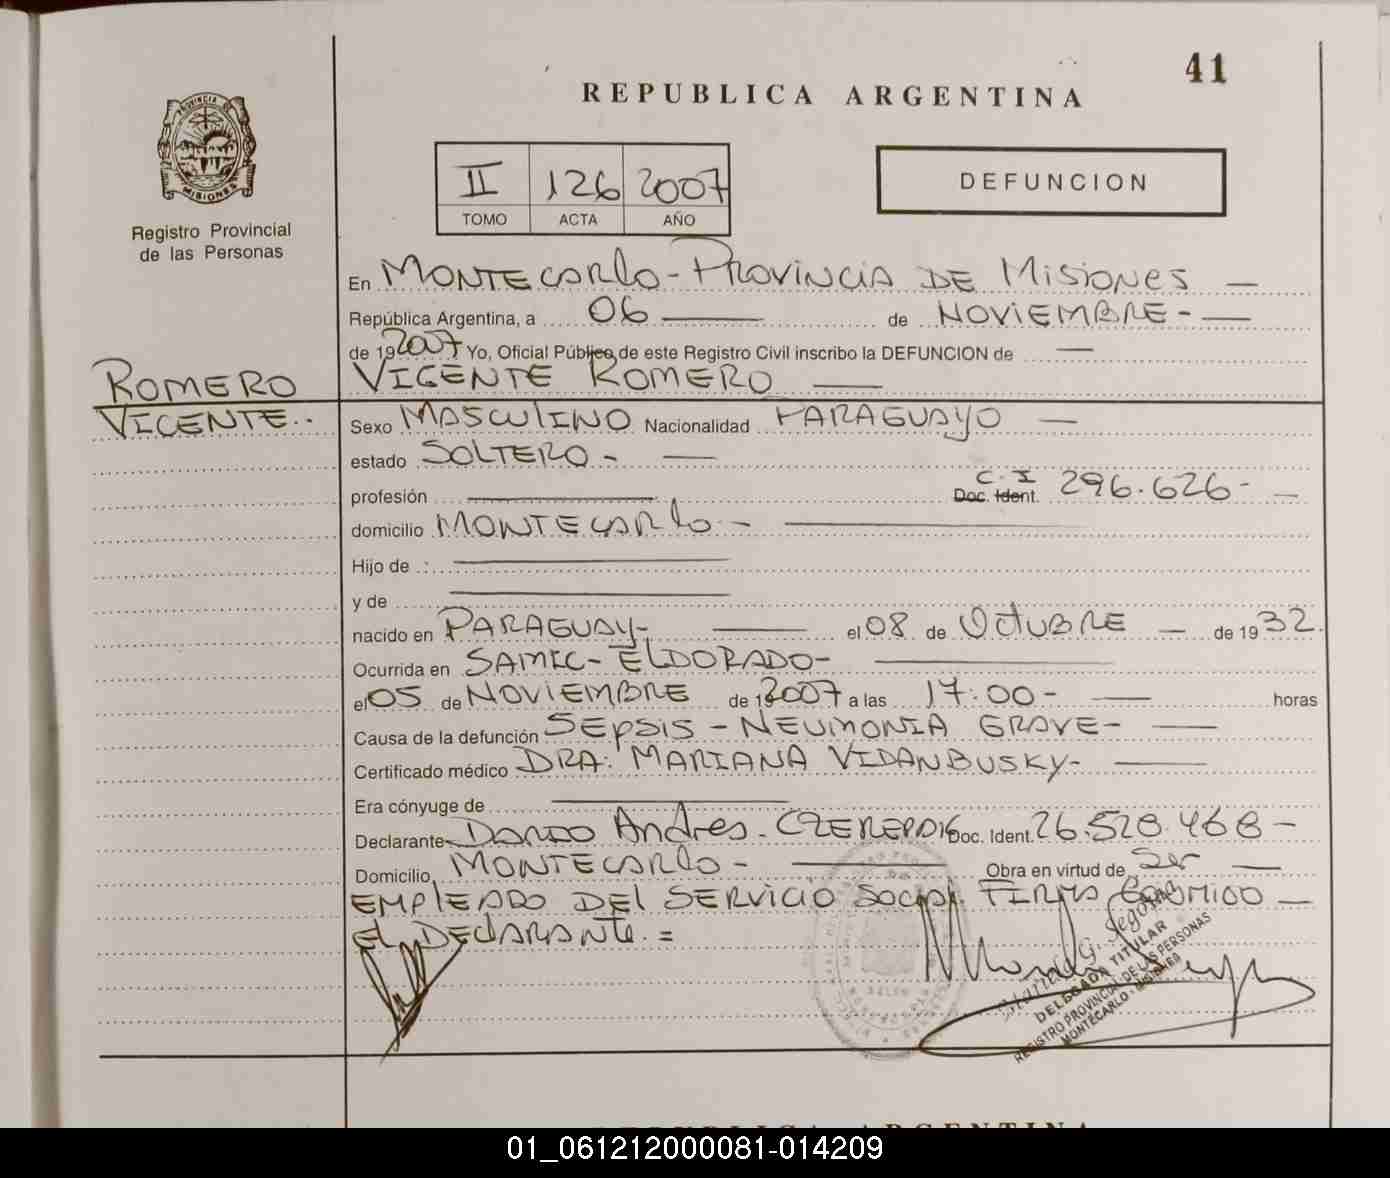 41
REPUBLICA ARGENTINA
PROVINCIA DE
MISIONES
Registro Provincial
de las Personas
II 126 2007
TOMO ACTA AÑO
DEFUNCION
En MONTECARLO - PROVINCIA DE MISIONES —
República Argentina, a 06 — de NOVIEMBRE - —
de 192007 Yo, Oficial Público de este Registro Civil inscribo la DEFUNCION de —
ROMERO VICENTE ROMERO —
VICENTE.-
Sexo MASCULINO Nacionalidad PARAGUAYO —
estado SOLTERO - —
profesión — Doc. Ident. C. I 296.626- —
domicilio MONTECARLO - —
Hijo de .: —
y de —
nacido en PARAGUAY- — el 08 de OCTUBRE — de 1932.
Ocurrida en SAMIC- ELDORADO- —
el 05 de NOVIEMBRE de 192007 a las 17:00- — horas
Causa de la defunción SEPSIS - NEUMONIA GRAVE- —
Certificado médico DRA: MARIANA VIDANBUSKY- —
Era cónyuge de —
Declarante DARIO Andres. Doc. Ident. 26.528.468-
Domicilio MONTECARLO - — Obra en virtud de Ser —
EMPLEADO DEL SERVICIO SOCIAL FIRMA CONMIGO —
EL DECLARANTE. =
DELEGADA TITULAR
REGISTRO PROVINCIAL DE LAS PERSONAS
MONTECARLO - MISIONES
REPUBLICA ARGENTINA
01_061212000081-014209